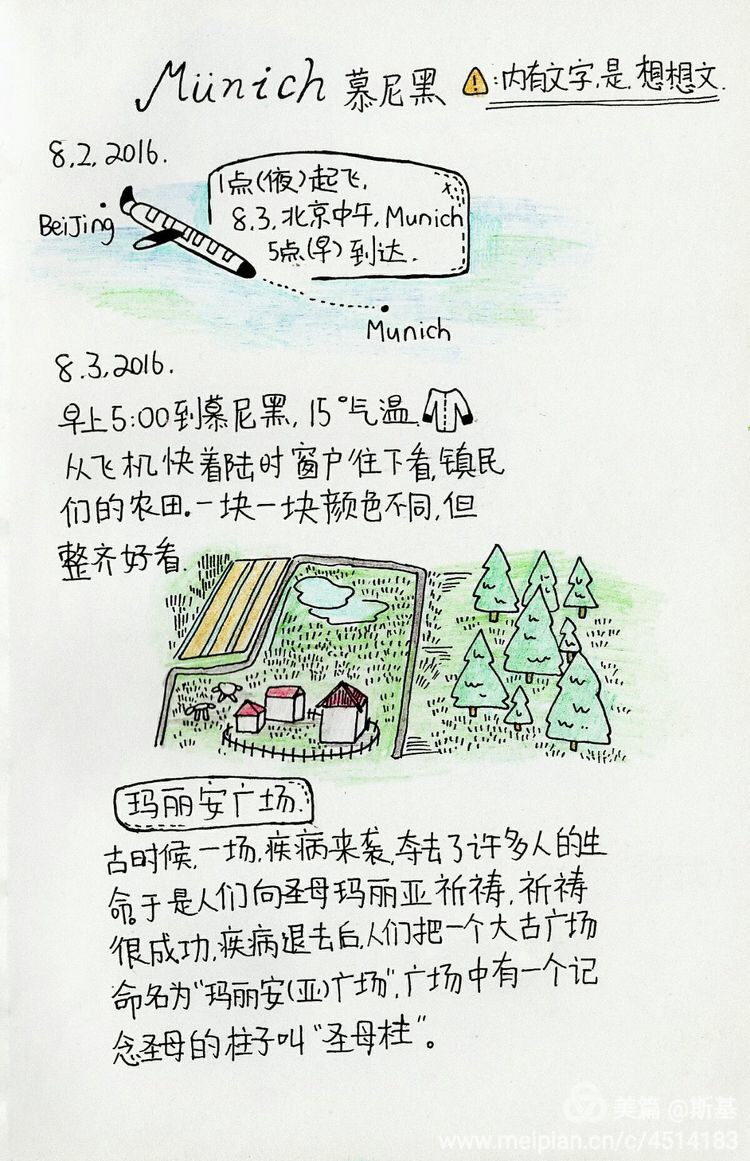 Münich 慕尼黑 ⚠:内有文字,是.想想文.
8.2,2016.
1点(夜)起飞,
8.3,北京中午,Munich
5点(早)到达.
BeiJing
Munich
8.3,2016.
早上5:00到慕尼黑,15°气温
从飞机快着陆时窗户往下看,镇民
们的农田.一块一块颜色不同,但
整齐好看.
玛丽安广场.
古时候,一场,疾病来袭,夺去了许多人的生
命。于是人们向圣母玛丽亚祈祷,祈祷
很成功,疾病退去后,人们把一个大古广场
命名为"玛丽安(亚)广场",广场中有一个记
念圣母的柱子叫"圣母柱"。
美篇@斯基
www.meipian.cn/c/4514183